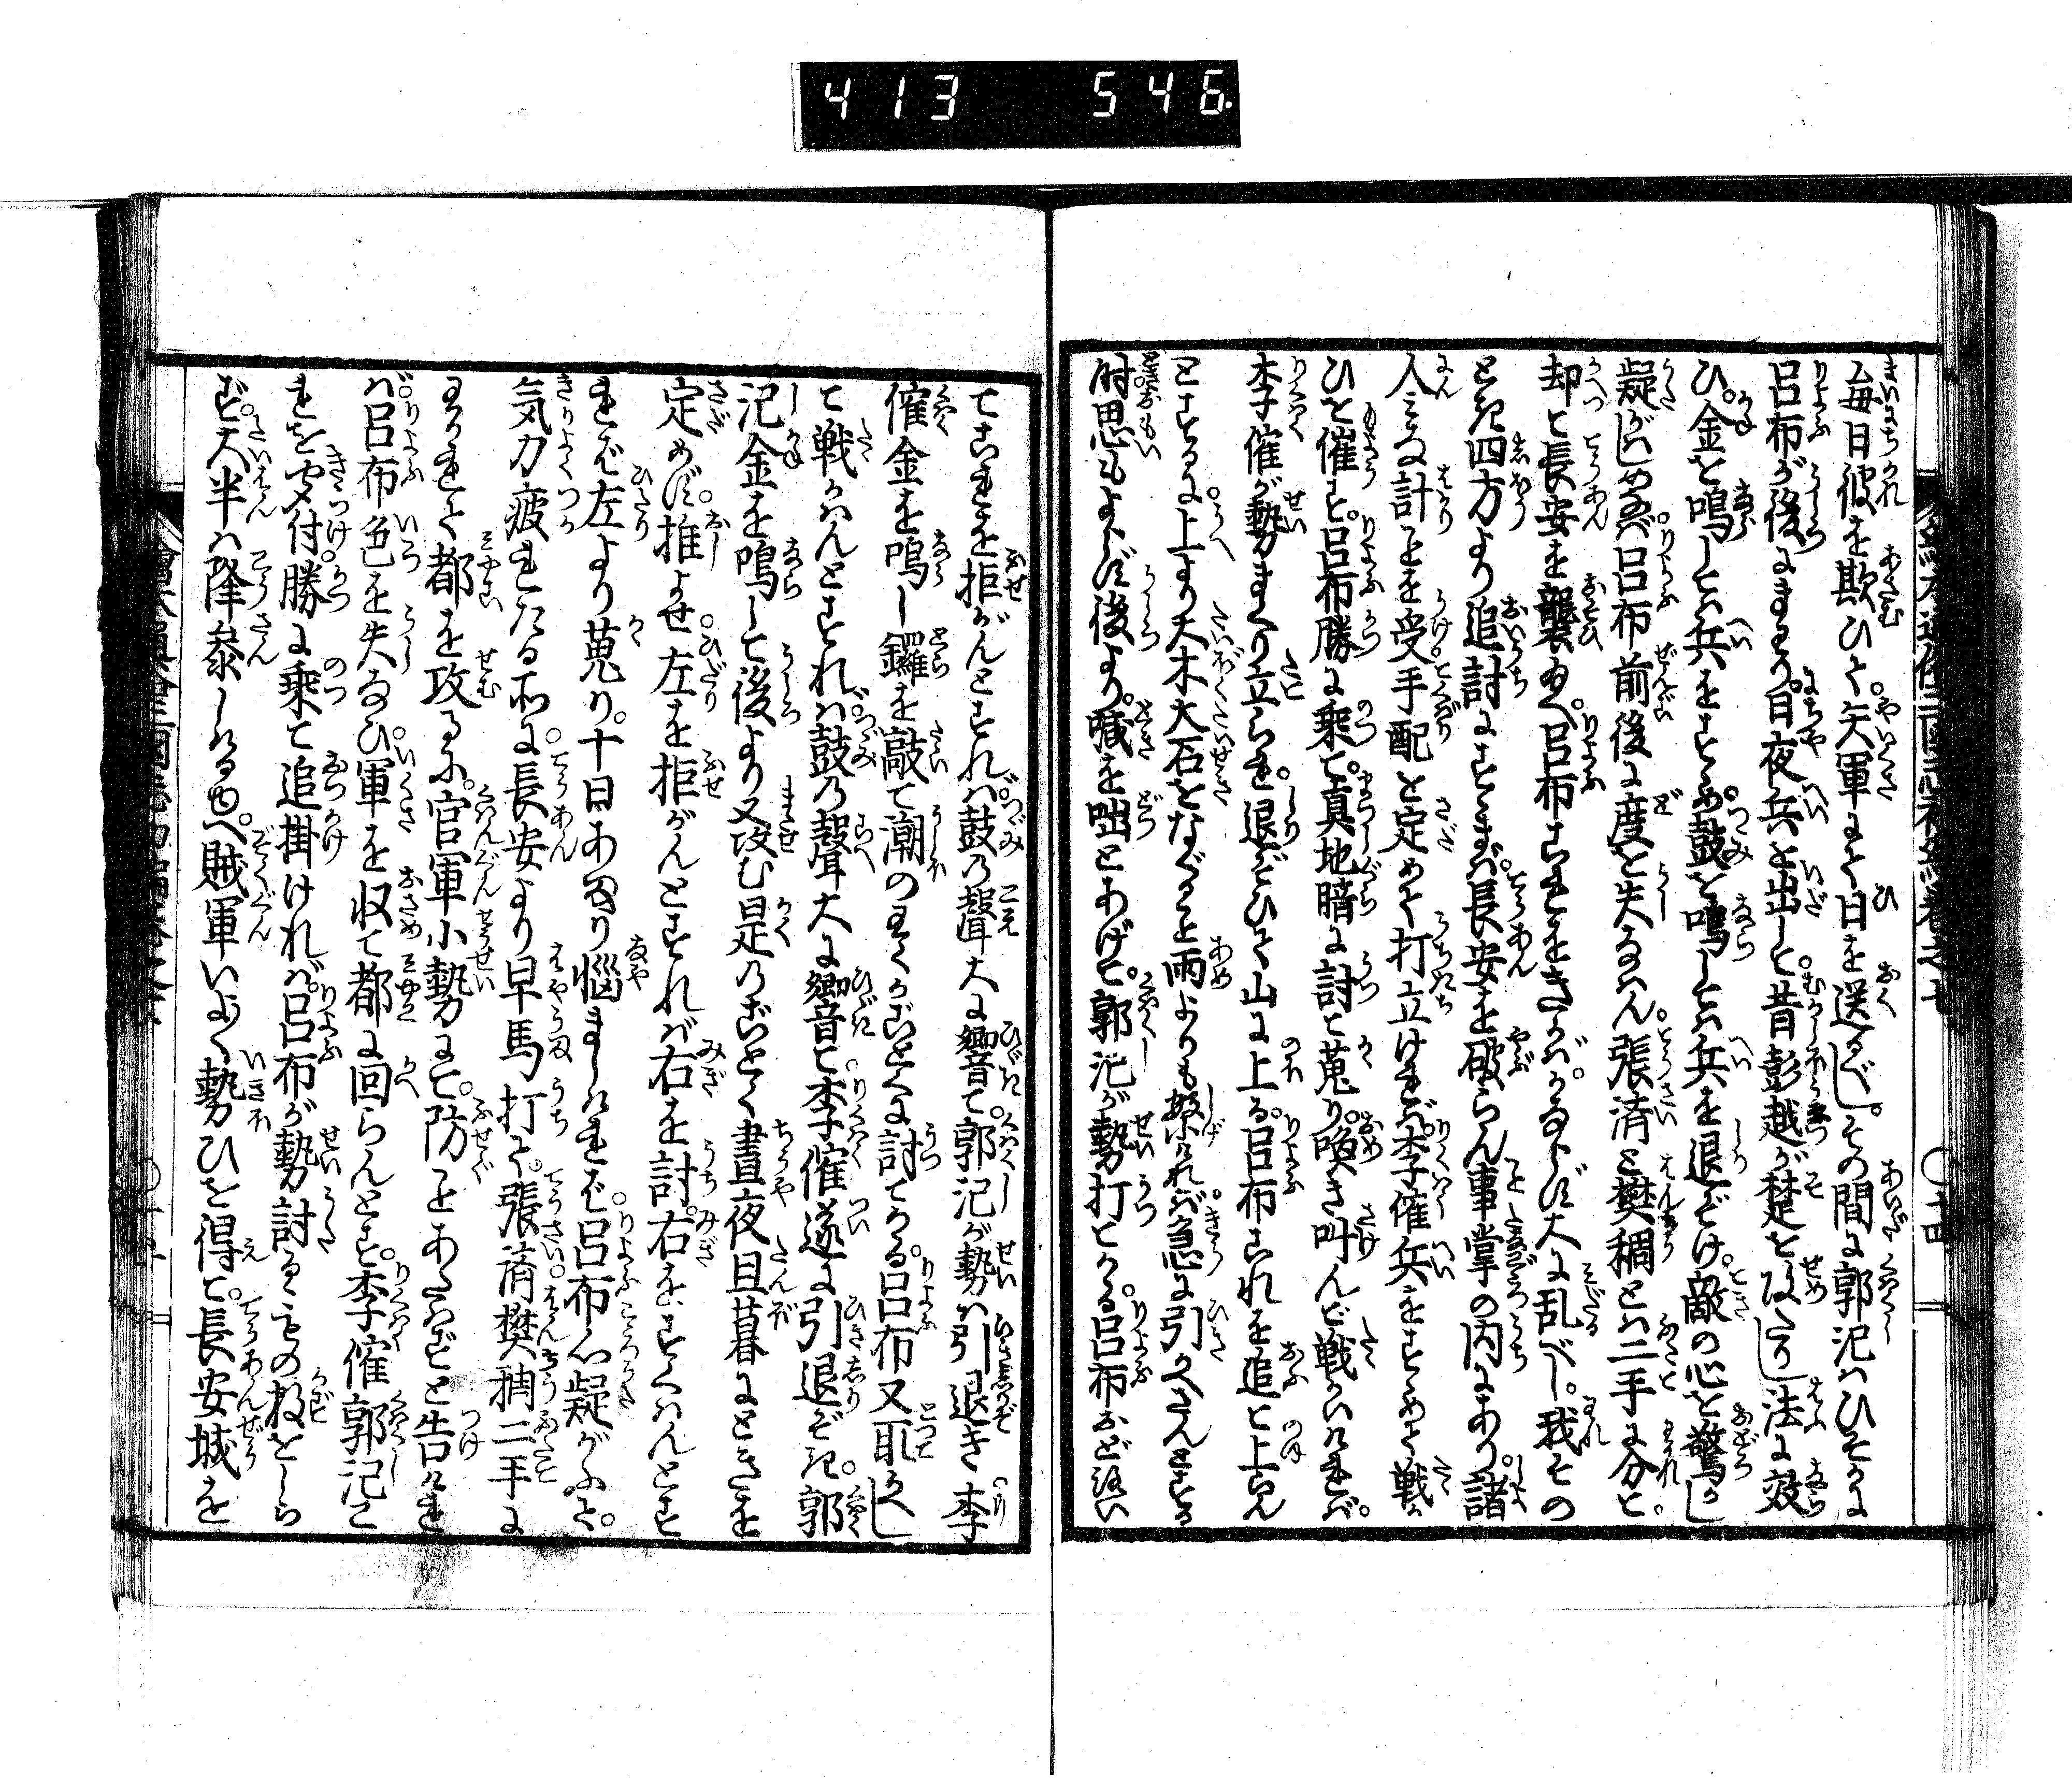 413 546
毎日彼を欺ひて。矢軍して日を送るべし。その間に郭汜ハひそかに
呂布が後にまはり。日夜兵を出して。昔彭越が楚を攻たりし法に效
ひ。金を鳴して兵をすゝめ。鼓を鳴して兵を退ぞけ。敵の心を驚かし
疑がはしめなバ。呂布前後に度を失なはん。張済と樊稠とハ二手に分て。
却て長安を襲ゆへ。呂布これをきかバ。かならず大に乱べし。我その
とき四方より追討にすくまば。長安を破らん事掌の内にあり。諸
人みな計ことを受。手配を定めて打立けれバ。李傕兵をすゝめて戦か
ひを催す。呂布勝に乗て。真地暗に討て蒐り。喚き叫んで戦かいければ。
李傕が勢まくり立られ。退ぞひて山に上る。呂布これを追て上らん
とするに。上より大木大石をなぐる事雨よりも繁ければ。急に引かへさんとする
時。思もよらず後より。喊を咄とあげて。郭汜が勢打てかゝる。呂布おどろひ
てこれを拒がんとすれバ。鼓の聲大に響て。郭汜が勢ハ引退き。李
傕金を鳴し鑼を敲て。潮のわくがごとくに討てかゝる。呂布又取てかへし
て戦かハんとすれバ。鼓の聲大に響て。李傕遂に引退ぞき。郭
汜金を鳴して後より又攻む。是のごとく昼夜旦暮にときを
定めず。推よせ。左を拒がんとすれバ右を討。右をすくハんとす
れば左より蒐り。十日あまり悩ましければ。呂布心疑がふて。
気力疲れたる所に。長安より早馬打て。張済。樊稠二手に
わかれて都を攻るに。官軍小勢にて。防ことあたハずと告けれ
バ。呂布色を失なひ。軍を収て都に回らんとす。李傕郭汜こ
れを聞付。勝に乗て追掛けれバ。呂布が勢討るゝもの数をしら
ず。大半ハ降参しける也。賊軍いよ〳〵勢ひを得て。長安城を